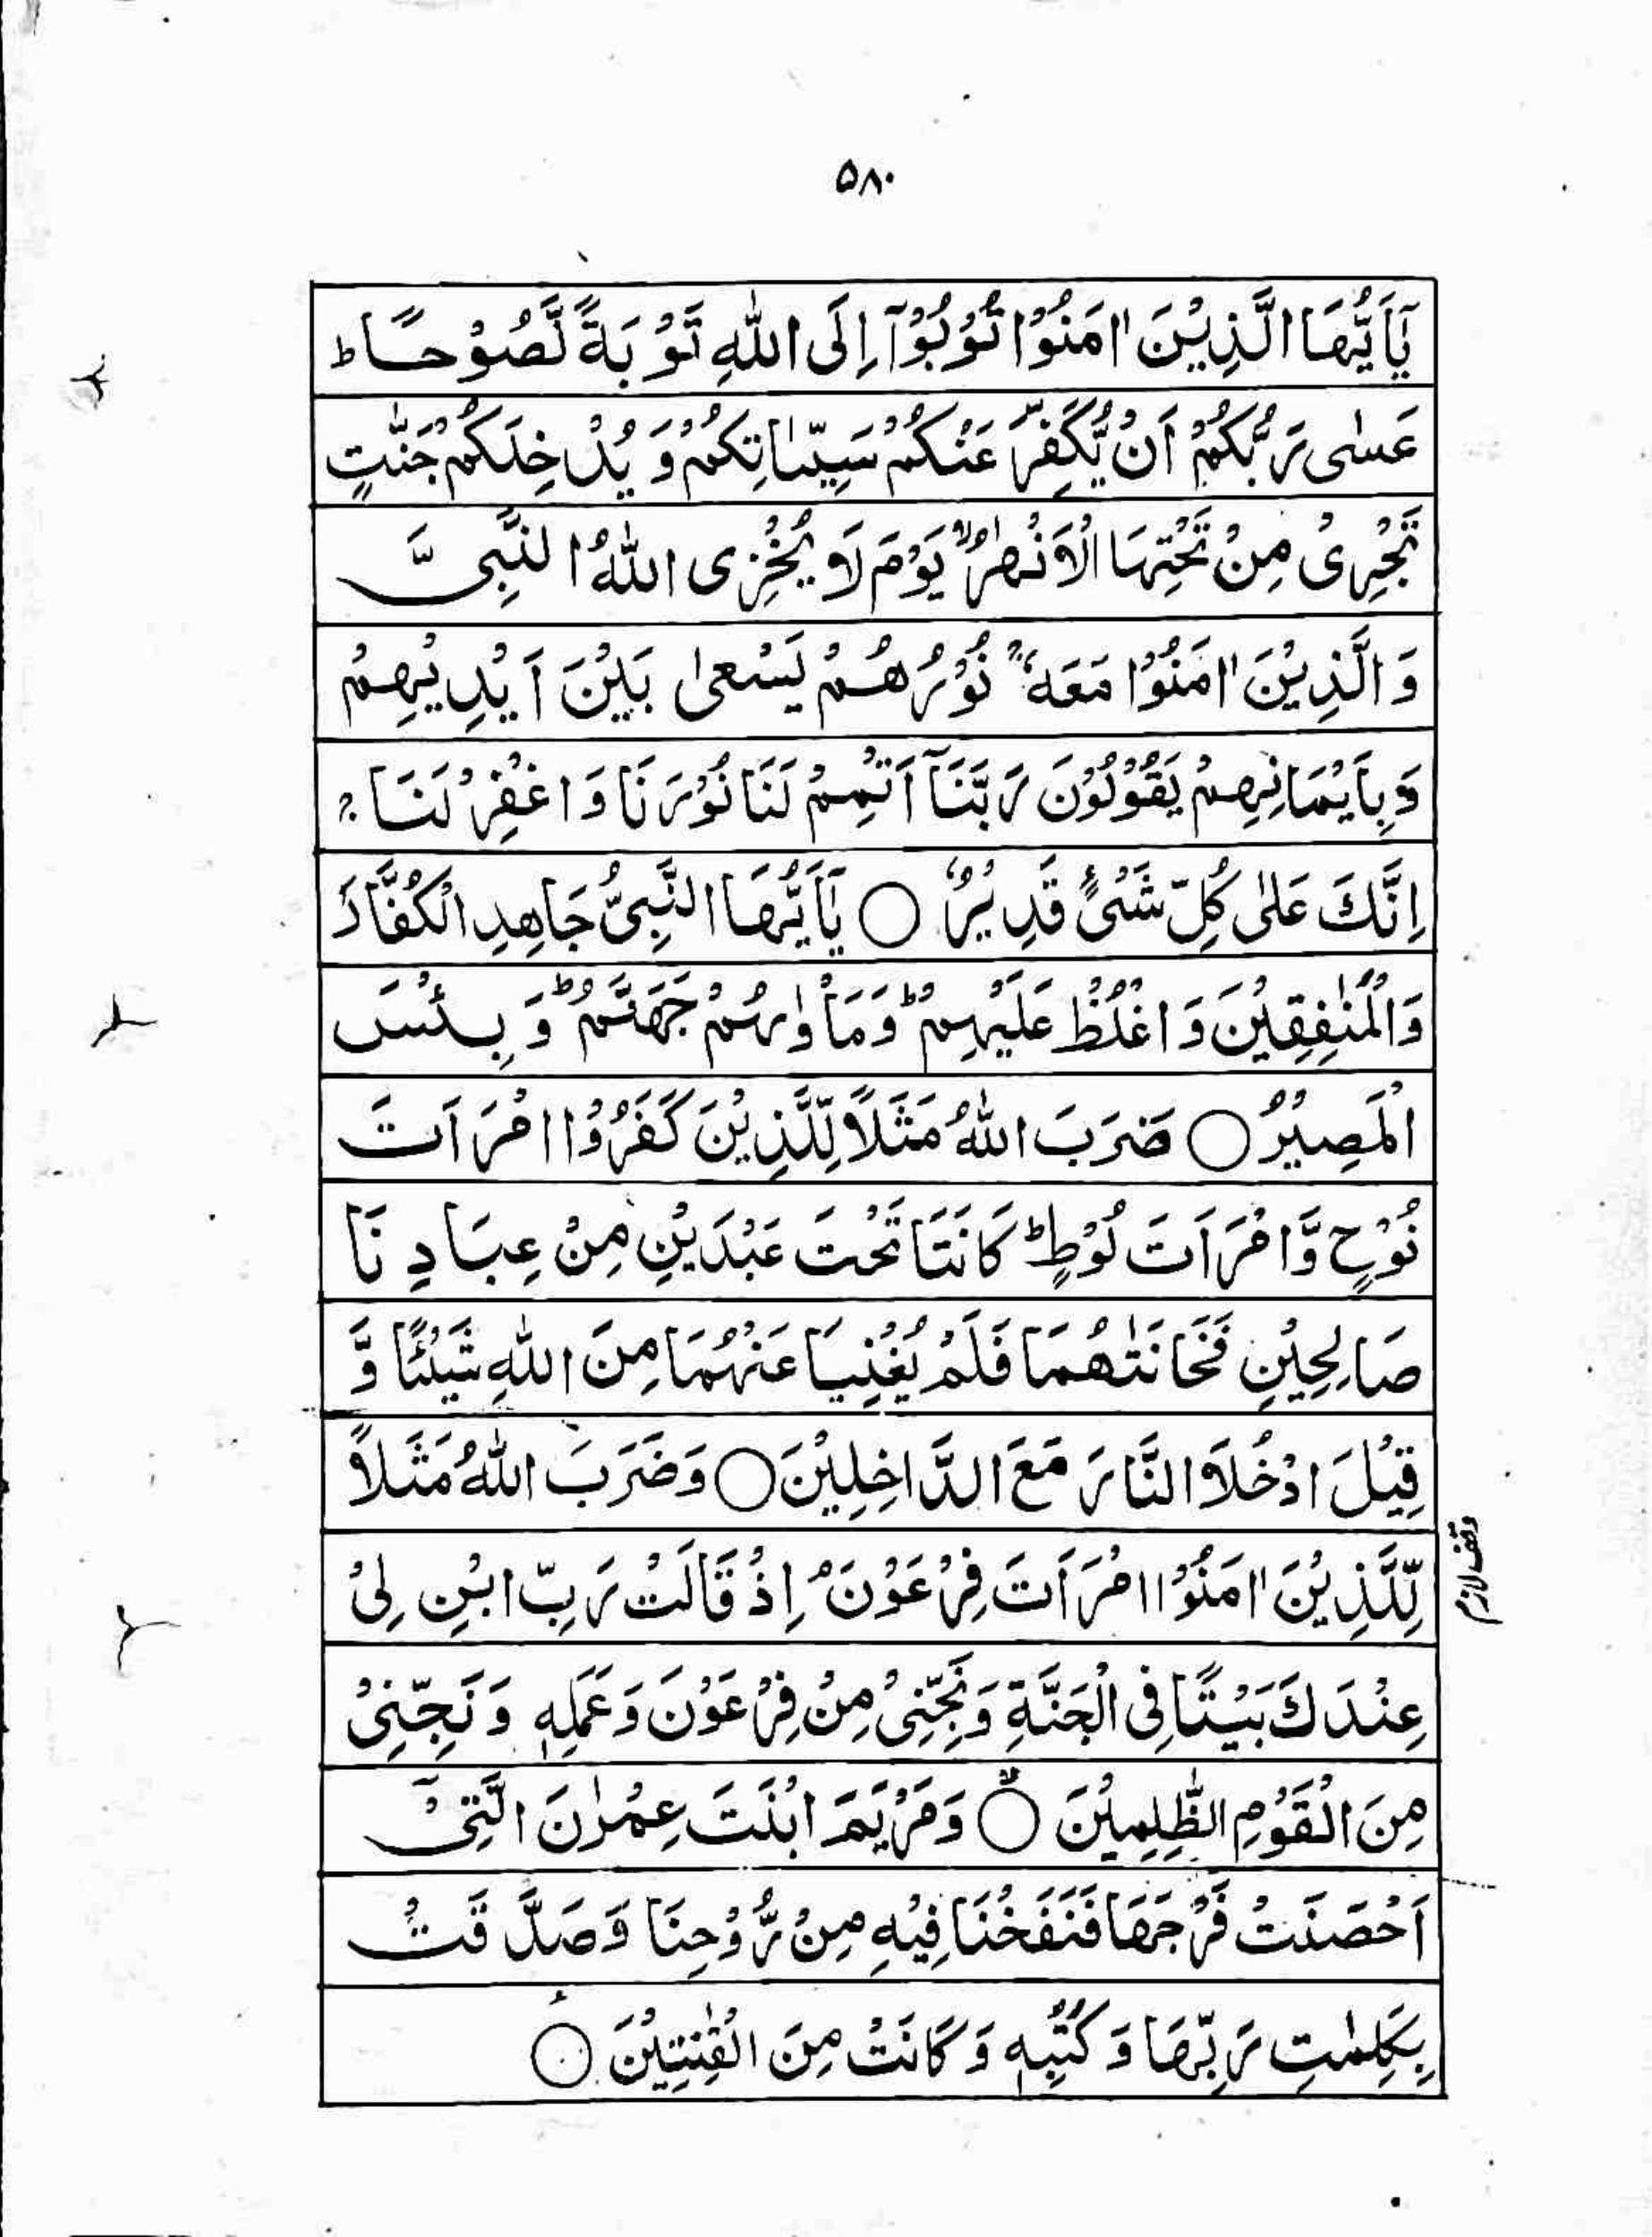 ۵۸۰
يٰٓاَيُّهَا الَّذِيْنَ اٰمَنُوْا تُوْبُوْٓا اِلَى اللّٰهِ تَوْبَةً نَّصُوْحًا ؕ
عَسٰى رَبُّكُمْ اَنْ يُّكَفِّرَ عَنْكُمْ سَيِّاٰتِكُمْ وَ يُدْخِلَكُمْ جَنّٰتٍ
تَجْرِىْ مِنْ تَحْتِهَا الْاَنْهٰرُ ۙ يَوْمَ لَا يُخْزِى اللّٰهُ النَّبِىَّ
وَ الَّذِيْنَ اٰمَنُوْا مَعَهٗ ۚ نُوْرُهُمْ يَسْعٰى بَيْنَ اَيْدِيْهِمْ
وَ بِاَيْمَانِهِمْ يَقُوْلُوْنَ رَبَّنَآ اَتْمِمْ لَنَا نُوْرَنَا وَ اغْفِرْ لَنَا ۚ
اِنَّكَ عَلٰى كُلِّ شَىْءٍ قَدِيْرٌ ○ يٰٓاَيُّهَا النَّبِىُّ جَاهِدِ الْكُفَّارَ
وَ الْمُنٰفِقِيْنَ وَ اغْلُظْ عَلَيْهِمْ ؕ وَ مَاْوٰىهُمْ جَهَنَّمُ ؕ وَ بِئْسَ
الْمَصِيْرُ ○ ضَرَبَ اللّٰهُ مَثَلًا لِّلَّذِيْنَ كَفَرُوا امْرَاَتَ
نُوْحٍ وَّ امْرَاَتَ لُوْطٍ ؕ كَانَتَا تَحْتَ عَبْدَيْنِ مِنْ عِبَادِنَا
صَالِحِيْنِ فَخَانَتٰهُمَا فَلَمْ يُغْنِيَا عَنْهُمَا مِنَ اللّٰهِ شَيْئًا وَّ
قِيْلَ ادْخُلَا النَّارَ مَعَ الدَّاخِلِيْنَ ○ وَ ضَرَبَ اللّٰهُ مَثَلًا
لِّلَّذِيْنَ اٰمَنُوا امْرَاَتَ فِرْعَوْنَ ۘ اِذْ قَالَتْ رَبِّ ابْنِ لِىْ
وقف لازم
عِنْدَكَ بَيْتًا فِى الْجَنَّةِ وَ نَجِّنِىْ مِنْ فِرْعَوْنَ وَ عَمَلِهٖ وَ نَجِّنِىْ
مِنَ الْقَوْمِ الظّٰلِمِيْنَ ○ۙ وَ مَرْيَمَ ابْنَتَ عِمْرٰنَ الَّتِىْٓ
اَحْصَنَتْ فَرْجَهَا فَنَفَخْنَا فِيْهِ مِنْ رُّوْحِنَا وَ صَدَّقَتْ
بِكَلِمٰتِ رَبِّهَا وَ كُتُبِهٖ وَ كَانَتْ مِنَ الْقٰنِتِيْنَ ○